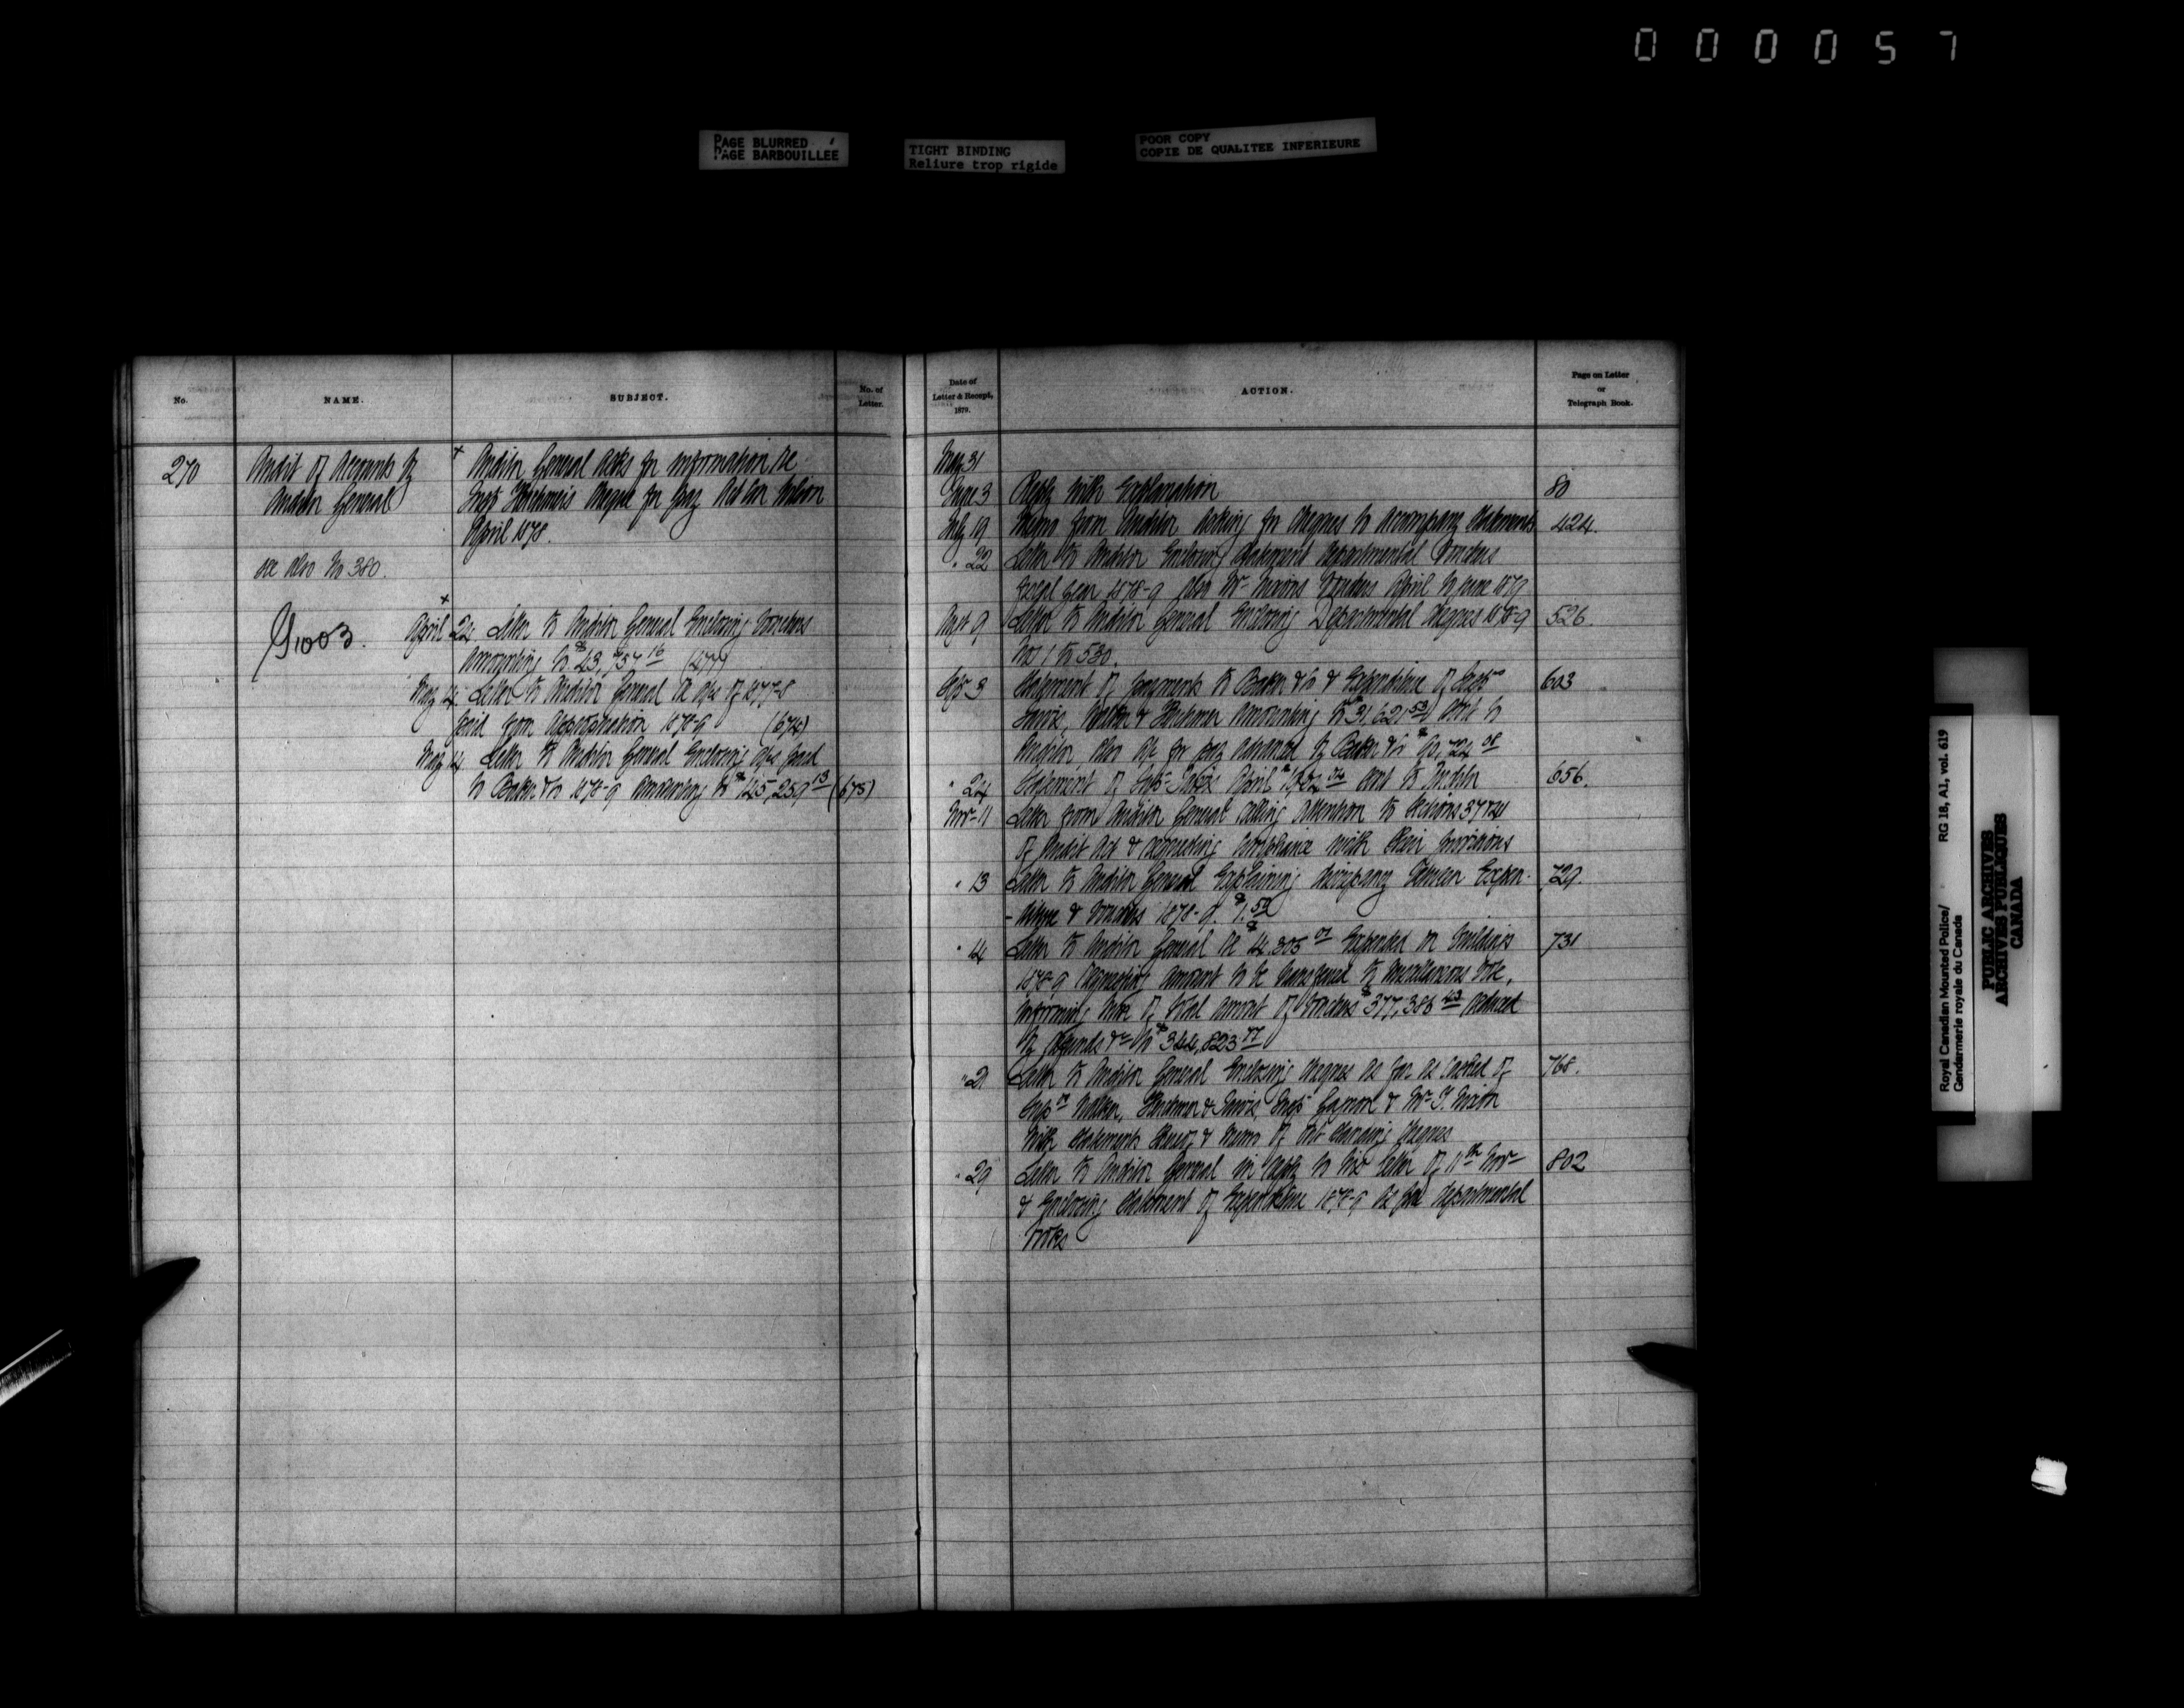 000057
PAGE BLURRED
PAGE BARBOUILLEE
TIGHT BINDING
Reliure trop rigide
POOR COPY
COPIE DE QUALITEE INFERIEURE
No.
NAME.
SUBJECT.
No. of
Letter.
270
Audit of Accounts by
Auditor General
see also No 380.
9,003.
Auditor General asks for information re
Insp Herchmer's cheque for pay
April 1878.
April 24 Letter to Auditor General Enclosing Vouchers
Amounting to $43,757 16 (477)
May 14. Letter to Auditor General re a/cs of 1877-8
paid from Appropriation 1878-9 (674)
May 14 Letter to Auditor General Enclosing a/cs paid
to Baker & Co 1878-9 amounting to $145,259 13 (675)
Date of
Letter & Receipt,
1879.
ACTION.
Page on Letter
or
Telegraph Book.
May 31
June 3 Reply with Explanation 80
July 19 Memo from Auditor asking for cheques to accompany statements 424.
" 22 Letter to Auditor Enclosing statement Departmental Vouchers
Fiscal year 1878-9 also Mr Nixons Vouchers April to June 1879
Augt 9 Letter to Auditor General Enclosing Departmental cheques 1878-9 526.
Nos 1 to 530.
Sept 3 Statement of payments to Baker & Co & Expenditure of Supts 603
Jarvis, Walker & Herchmer amounting to $31,621 53 sent to
Auditor, also a/c for pay advanced by Baker & Co $90,724 08
" 24 Statement of Supt Jarvis April sent to Auditor 656.
Nov 11 Letter from Auditor General calling attention to Sections 37
of Audit Act & requesting compliance with their provisions
" 13 Letter to Auditor General Explaining discrepancy between Expen- 729.
-diture & Vouchers 1878-9.
" 14 Letter to Auditor General re $4,305 07 Expended on buildings 731
1878-9 requesting amount to be transferred to miscellaneous Vote,
informing him of total amount of Vouchers $377,386 43 reduced
by refunds &c to $344,823 77
" 21 Letter to Auditor General Enclosing cheques as far as cashed of 768.
Supts Walker, Herchmer & Jarvis, Insp Gagnon & Mr T. Nixon
with statements thereof & memo of outstanding cheques
" 29 Letter to Auditor General in reply to his letter of 11th Nov 802
& Enclosing statement of Expenditure 1878-9 as per departmental
books
Royal Canadian Mounted Police/ RG 18, A1, vol. 619
Gendarmerie royale du Canada
PUBLIC ARCHIVES
ARCHIVES PUBLIQUES
CANADA